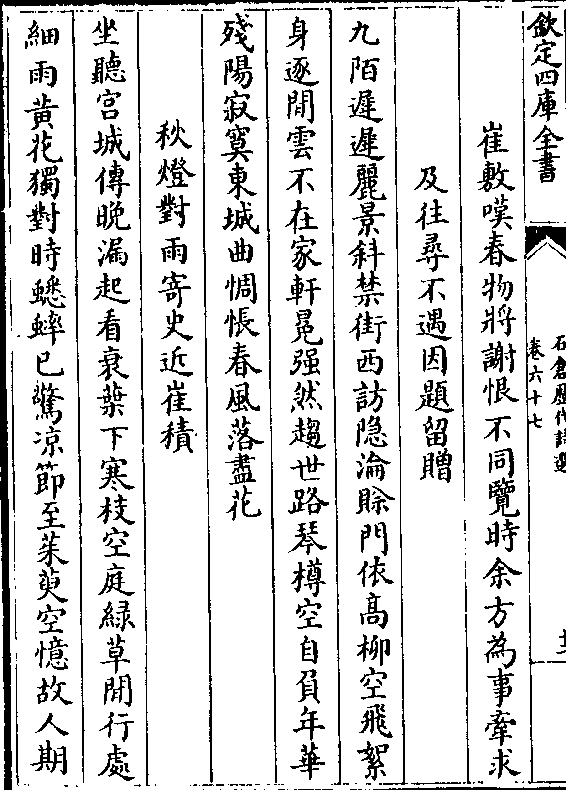 欽定四庫全書
石倉歷代詩選
卷六十七
崔敷嘆春物將謝恨不同覽時余方為事牽求
及往尋不遇因題留贈
九陌遲遲麗景斜禁街西訪隐淪賒門依髙柳空飛絮
身逐閒雲不在家軒冕强然趨世路琴樽空自負年華
殘陽寂寞東城曲惆悵春風落盡花
秋燈對雨寄史近崔積
坐聽宫城傳晚漏起看衰葉下寒枝空庭緑草閒行處
細雨黃花獨對時蟋蟀已驚凉節至茱萸空憶故人期